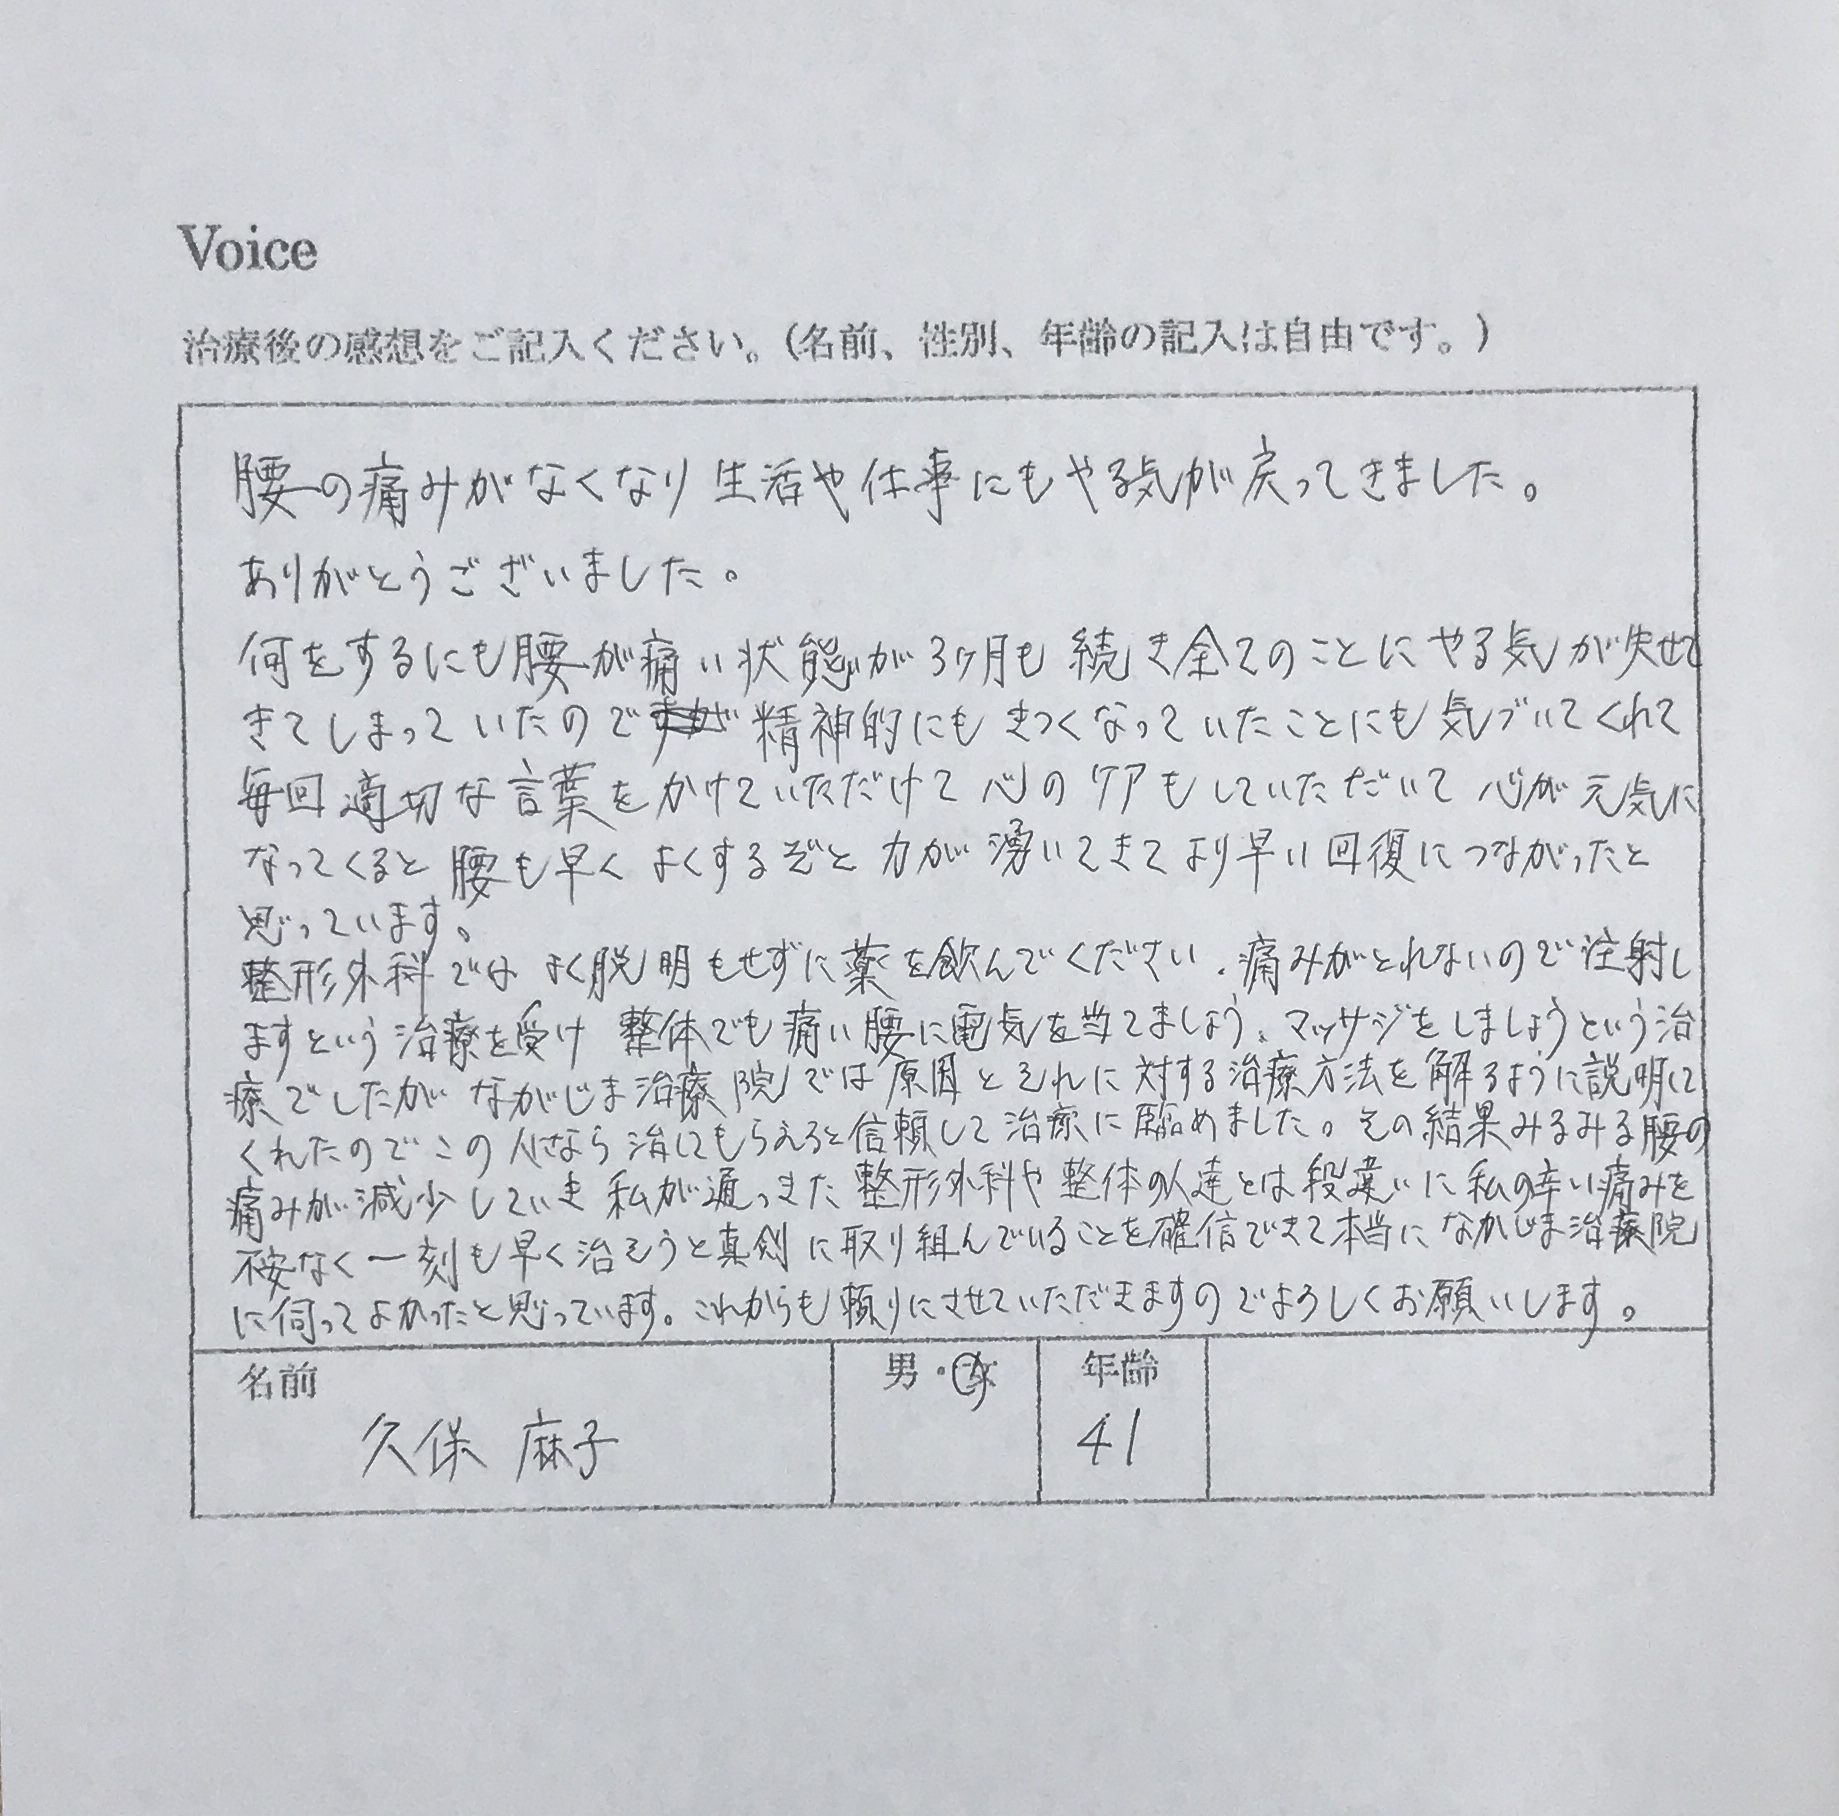 Voice
治療後の感想をご記入ください。(名前、性別、年齢の記入は自由です。)
腰の痛みがなくなり生活や仕事にもやる気が戻ってきました。
ありがとうございました。
何をするにも腰が痛い状態が3ヶ月も続き全てのことにやる気が失せて
きてしまっていたので精神的にもきつくなっていたことにも気づいてくれて
毎回適切な言葉をかけていただけて心のケアもしていただいて心が元気に
なってくると腰も早くよくするぞと力が湧いてきてより早い回復につながったと
思っています。
整形外科ではよく説明もせずに薬を飲んでください、痛みがとれないので注射し
ますという治療を受け 整体でも痛い腰に電気を当てましょう、マッサジをしましょうという治
療でしたがながじま治療院では原因とそれに対する治療方法を解るように説明して
くれたのでこの人なら治してもらえると信頼して治療に臨めました。その結果みるみる腰の
痛みが減少していき私が通ってきた整形外科や整体の人達とは段違いに私の辛い痛みを
不安なく一刻も早く治そうと真剣に取り組んでいることを確信できて本当にながじま治療院
に伺ってよかったと思っています。これからも頼りにさせていただきますのでよろしくお願いします。
名前 男・女 年齢
久保 麻子 41